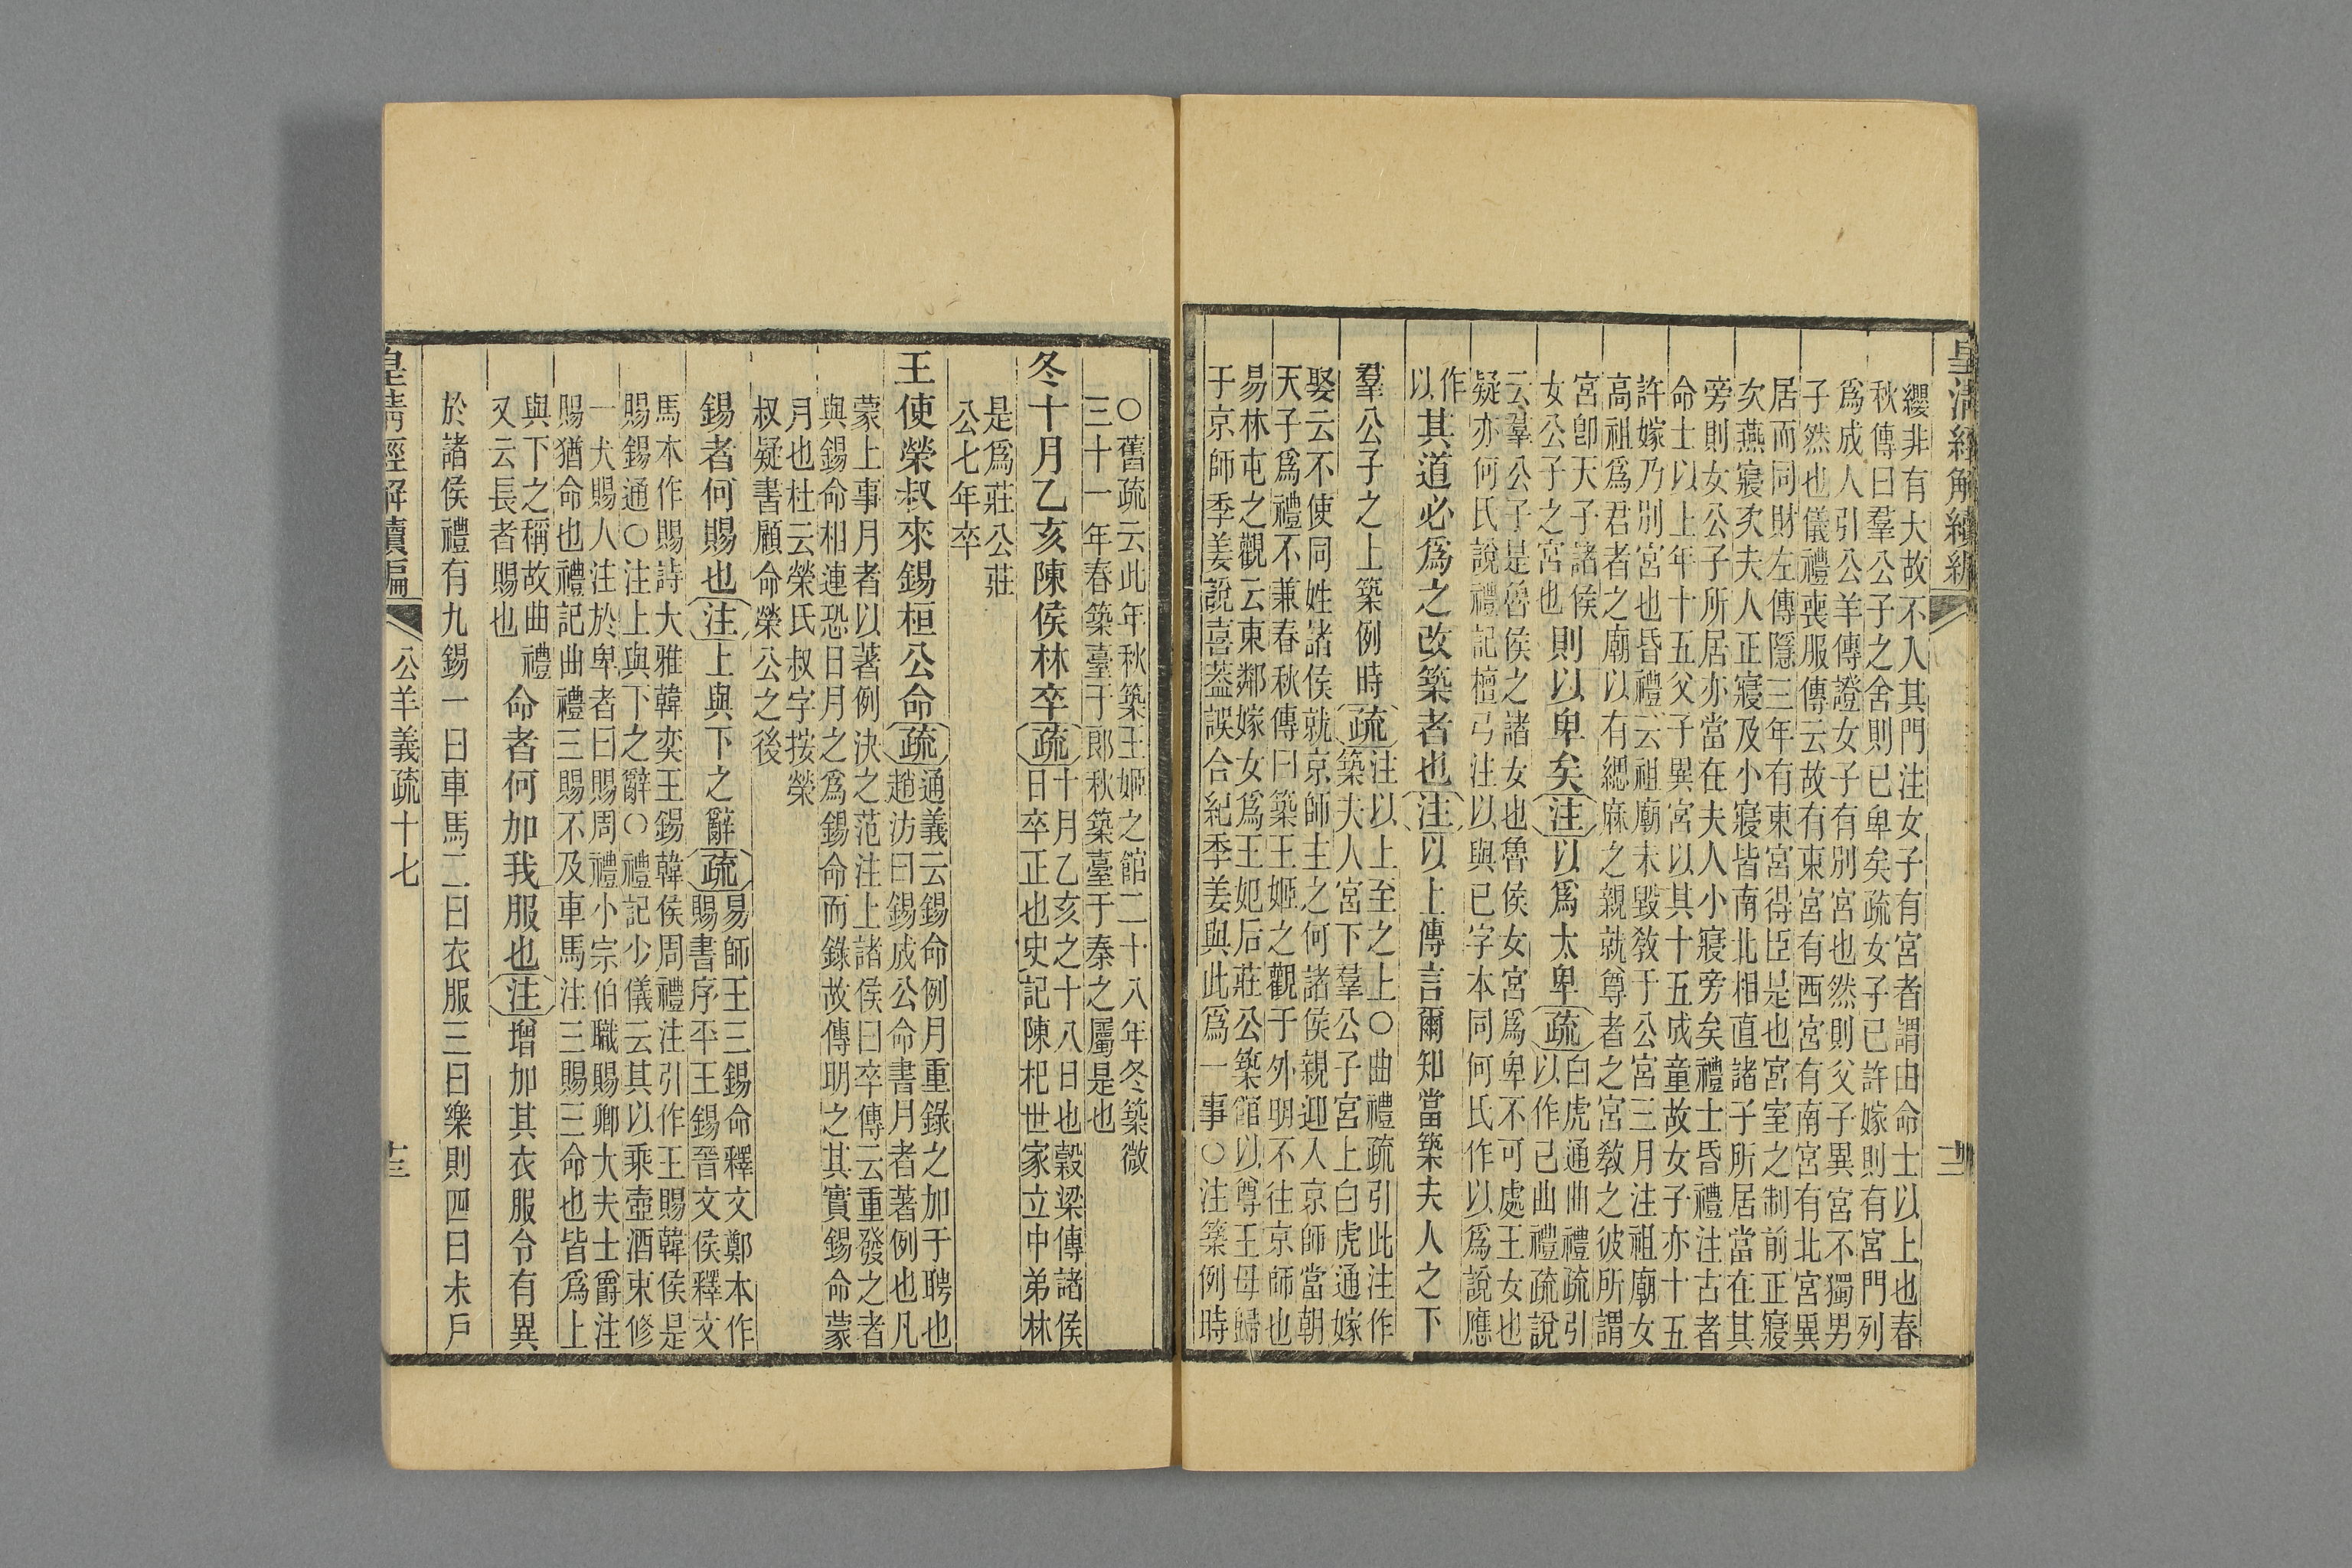 皇清經解續編
纓非有大故不入其門注女子有宮者謂由命士以上也春
秋傳曰羣公子之舍則已卑矣疏女子已許嫁則有宮門列
爲成人引公羊傳證女子有別宮也然則父子異宮不獨男
子然也儀禮喪服傳云故有東宮有西宮有南宮有北宮異
居而同財左傳隱三年有東宮得臣是也宮室之制前正寢
次燕寢次夫人正寢及小寢皆南北相直諸子所居當在其
旁則女公子所居亦當在夫人小寢旁矣禮士昏禮注古者
命士以上年十五父子異宮以其十五成童故女子亦十五
許嫁乃別宮也昏禮云祖廟未毀敎于公宮三月注祖廟女
高祖爲君者之廟以有緦麻之親就尊者之宮敎之彼所謂
宮卽天子諸侯
女公子之宮也
則以卑矣注以爲太卑疏
白虎通曲禮疏引
以作已曲禮疏說
云羣公子是魯侯之諸女也魯侯女宮爲卑不可處王女也
疑亦何氏說禮記檀弓注以與已字本同何氏作以爲說應
作
以
其道必爲之改築者也注以上傳言爾知當築夫人之下
羣公子之上築例時疏
注以上至之上○曲禮疏引此注作
築夫人宮下羣公子宮上白虎通嫁
娶云不使同姓諸侯就京師主之何諸侯親迎入京師當朝
天子爲禮不兼春秋傳曰築王姬之觀于外明不往京師也
易林屯之觀云東鄰嫁女爲王妃后莊公築館以尊王母歸
于京師季姜說喜蓋誤合紀季姜與此爲一事○注築例時
○舊疏云此年秋築王姬之館二十八年冬築微
三十一年春築臺于郎秋築臺于秦之屬是也
冬十月乙亥陳侯林卒疏
十月乙亥之十八日也穀梁傳諸侯
日卒正也史記陳杞世家立中弟林
是爲莊公莊
公七年卒
王使榮叔來錫桓公命疏
通義云錫命例月重錄之加于聘也
趙汸曰錫成公命書月者著例也凡
蒙上事月者以著例決之范注上諸侯日卒傳云重發之者
與錫命相連恐日月之爲錫命而錄故傳明之其實錫命蒙
月也杜云榮氏叔字按榮
叔疑書顧命榮公之後
錫者何賜也注上與下之辭疏
易師王三錫命釋文鄭本作
賜書序平王錫晉文侯釋文
馬本作賜詩大雅韓奕王錫韓侯周禮注引作王賜韓侯是
賜錫通○注上與下之辭○禮記少儀云其以乘壺酒束脩
一犬賜人注於卑者曰賜周禮小宗伯職賜卿大夫士爵注
賜猶命也禮記曲禮三賜不及車馬注三賜三命也皆爲上
與下之稱故曲禮
又云長者賜也
命者何加我服也注增加其衣服令有異
於諸侯禮有九錫一曰車馬二曰衣服三曰樂則四曰朱戶
皇清經解續編
公羊義疏十七
十三